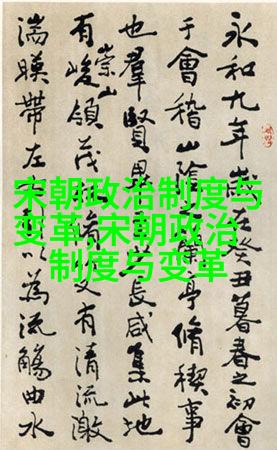 宋朝政治制度与
变革,宋朝政治
制度与变革
永和九年在癸丑暮春之初會
于會稽山陰蘭亭脩稧事
也羣賢長咸集此地
有崇山峻領茂又有清流激
湍暎帶左以為流觴曲水